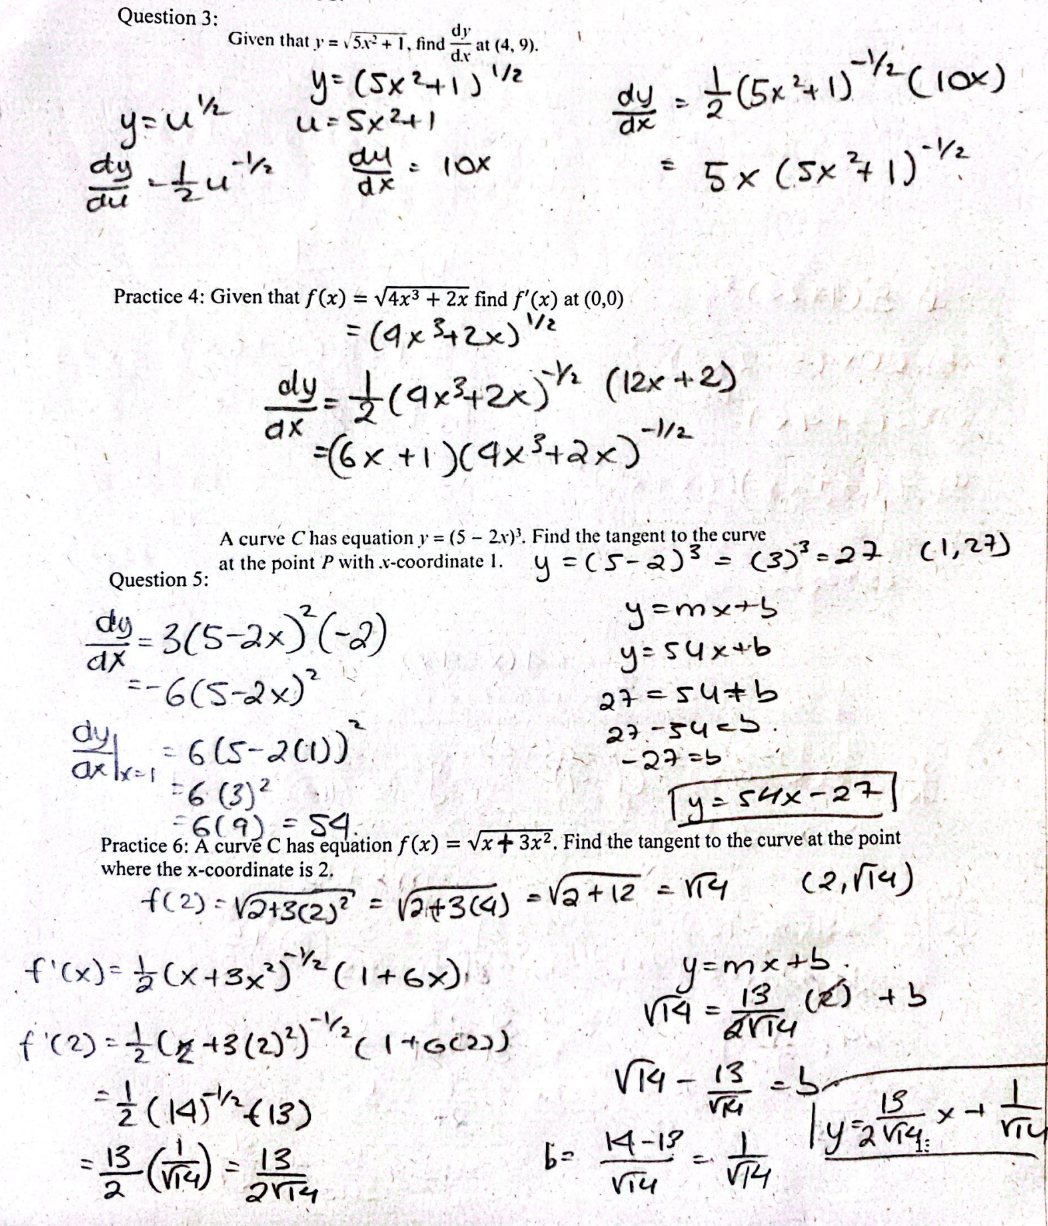 Question 3:
Given that y = √5x² + 1, find dy/dx at (4, 9).
y = (5x²+1)^1/2
y = u^1/2
u = 5x²+1
dy/du = 1/2 u^-1/2
du/dx = 10x
dy/dx = 1/2 (5x²+1)^-1/2 (10x)
= 5x (5x²+1)^-1/2
Practice 4: Given that f(x) = √4x³ + 2x find f'(x) at (0,0)
= (4x³+2x)^1/2
dy/dx = 1/2 (4x³+2x)^-1/2 (12x+2)
= (6x+1)(4x³+2x)^-1/2
A curve C has equation y = (5 – 2x)³. Find the tangent to the curve
at the point P with x-coordinate 1.
Question 5:
y = (5-2)³ = (3)³ = 27 (1,27)
dy/dx = 3(5-2x)²(-2)
= -6(5-2x)²
dy/dx|x=1 = 6(5-2(1))²
= 6(3)²
= 6(9) = 54.
y = mx+b
y = 54x+b
27 = 54+b
27-54=b.
-27=b
y = 54x-27
Practice 6: A curve C has equation f(x) = √x + 3x². Find the tangent to the curve at the point
where the x-coordinate is 2.
f(2) = √2+3(2)² = √2+3(4) = √2+12 = √14 (2,√14)
f'(x) = 1/2 (x+3x²)^-1/2 (1+6x)
f'(2) = 1/2 (2+3(2)²)^-1/2 (1+6(2))
= 1/2 (14)^-1/2 (13)
= 13/2 (1/√14) = 13/2√14
y=mx+b.
√14 = 13/2√14 (2) + b
√14 - 13/√14 = b
b= 14-13/√14 = 1/√14
y = 13/2√14 x + 1/√14